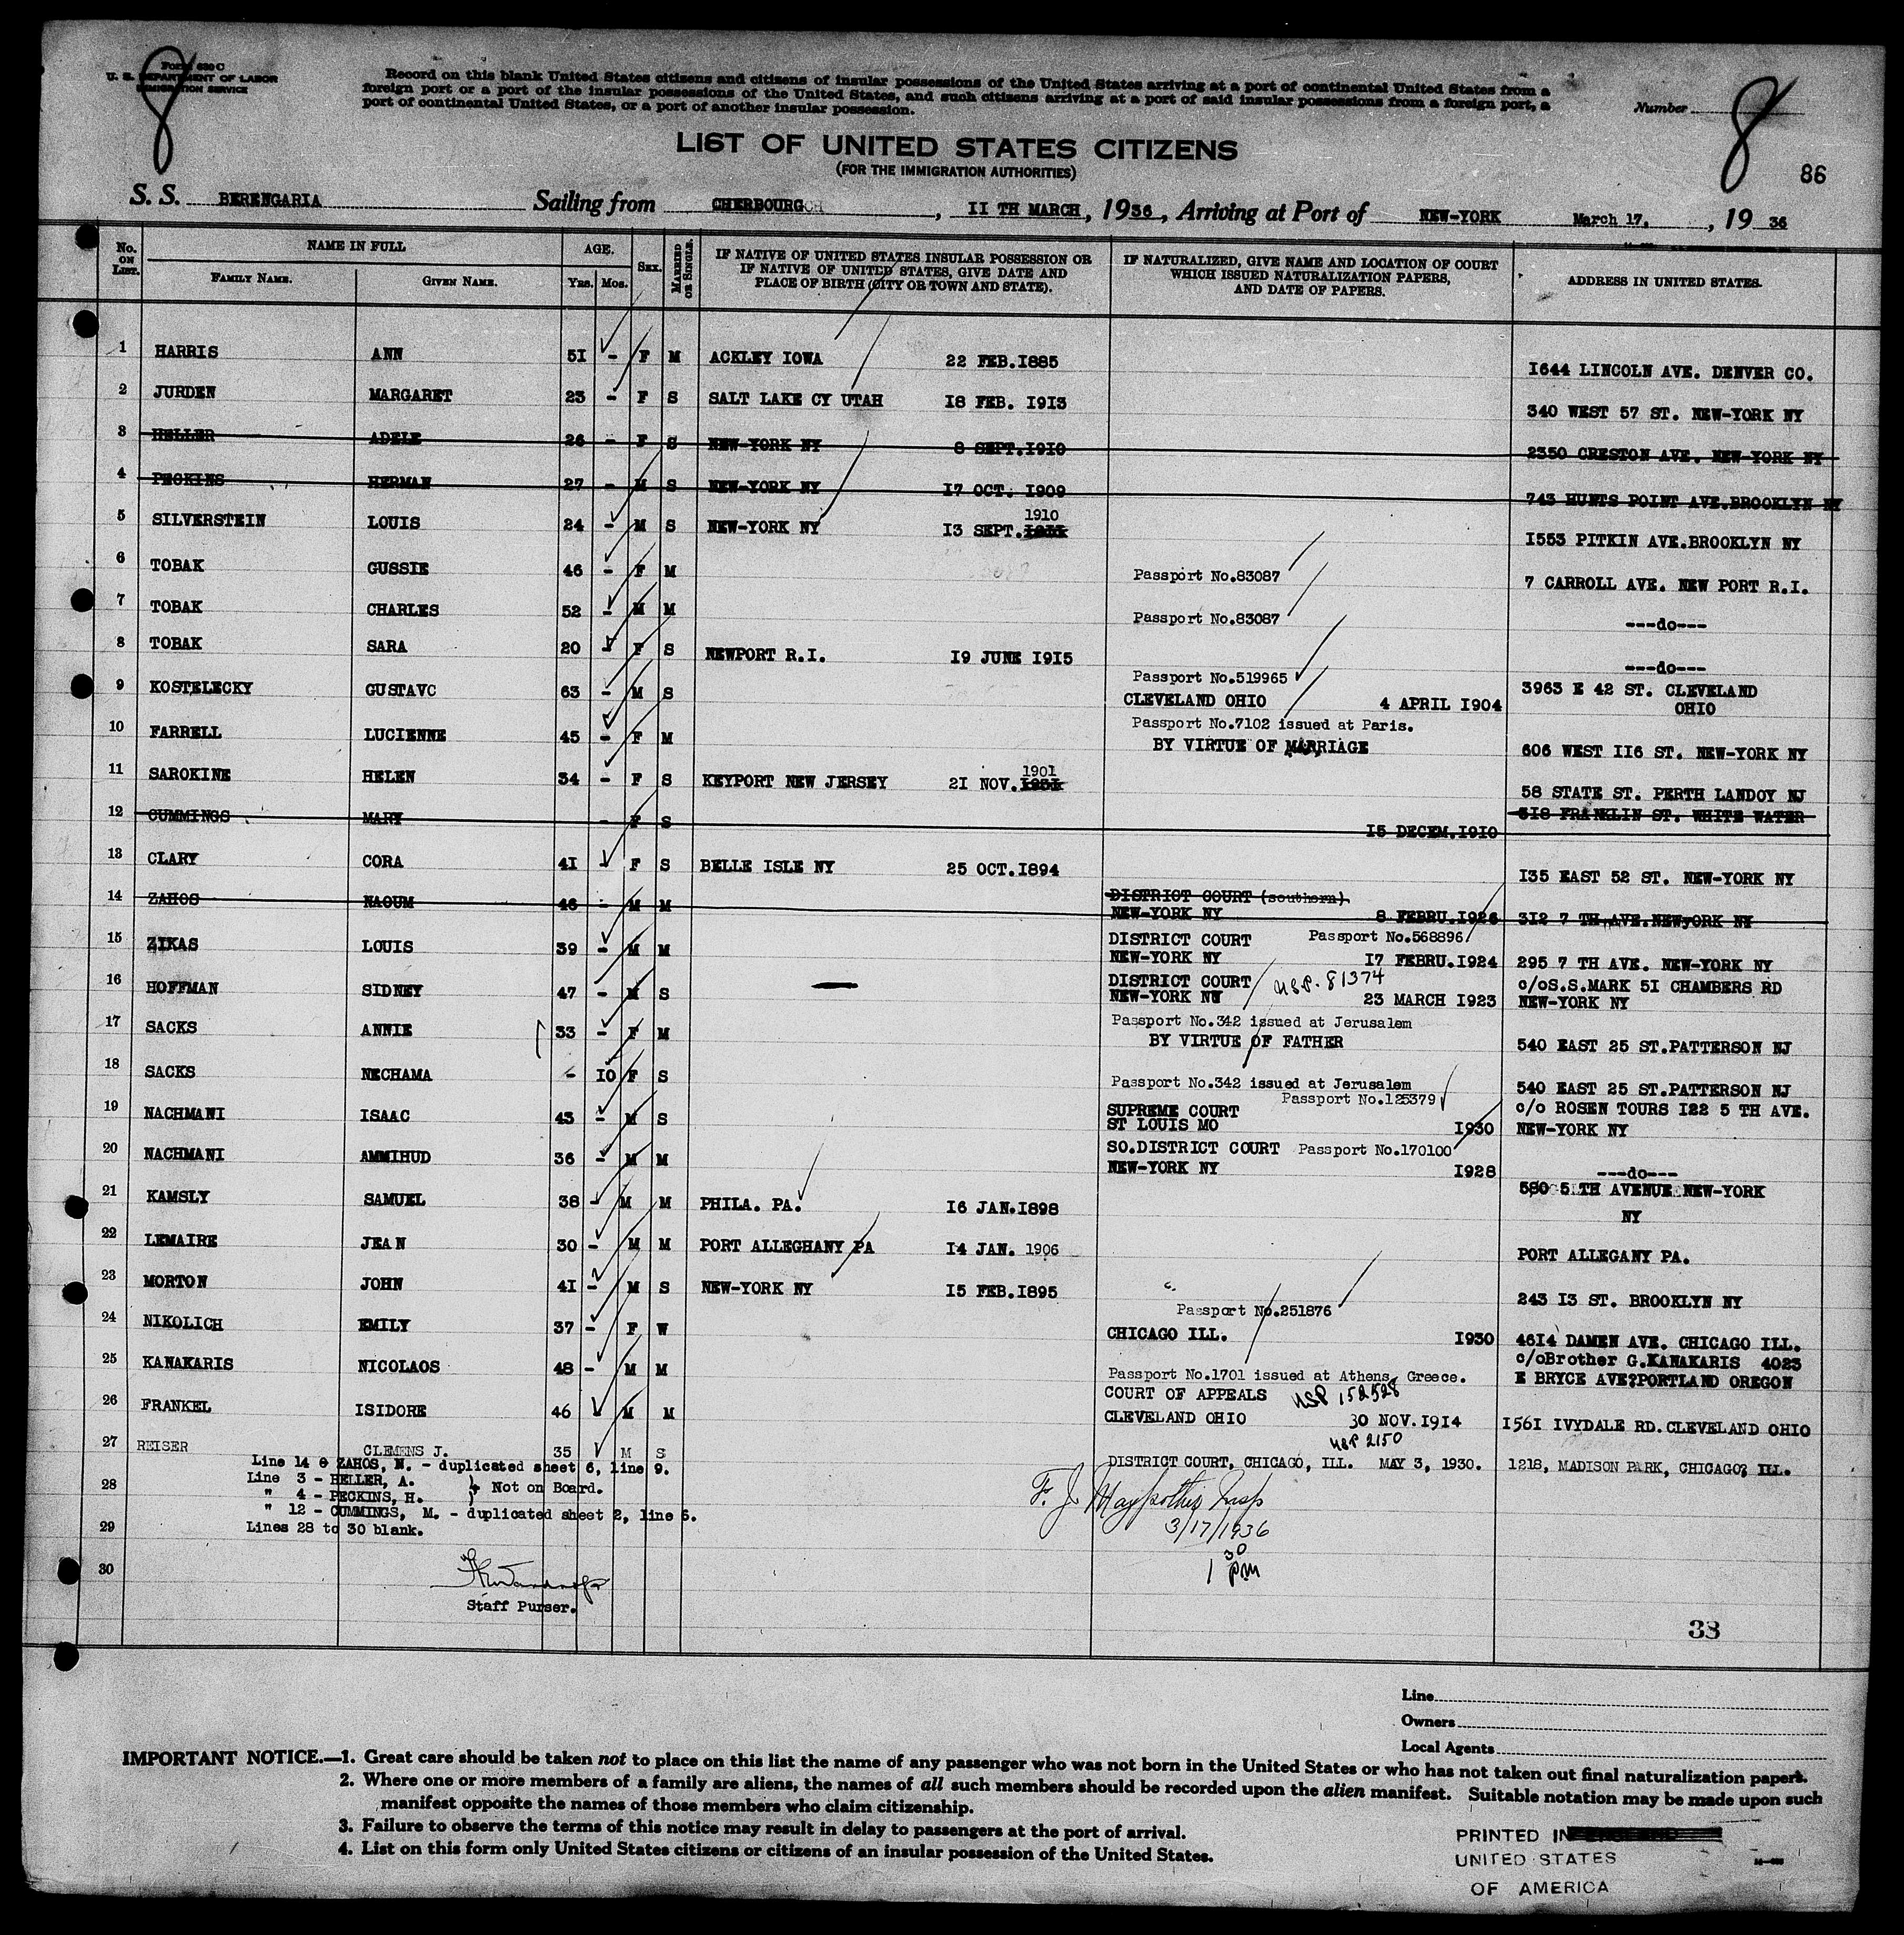 8
Form 630 C
U. S. DEPARTMENT OF LABOR
IMMIGRATION SERVICE
Record on this blank United States citizens and citizens of insular possessions of the United States arriving at a port of continental United States from a
foreign port or a port of the insular possessions of the United States, and such citizens arriving at a port of said insular possessions from a foreign port, a
port of continental United States, or a port of another insular possession.
Number 8
86
LIST OF UNITED STATES CITIZENS
(FOR THE IMMIGRATION AUTHORITIES)
S. S. BERENGARIA Sailing from CHERBOURG, II TH MARCH, 1936, Arriving at Port of NEW-YORK March 17, , 19 36
No. ON LIST. NAME IN FULL FAMILY NAME. GIVEN NAME. AGE. Yrs. Mos. SEX. MARRIED OR SINGLE. IF NATIVE OF UNITED STATES INSULAR POSSESSION OR IF NATIVE OF UNITED STATES, GIVE DATE AND PLACE OF BIRTH (CITY OR TOWN AND STATE). IF NATURALIZED, GIVE NAME AND LOCATION OF COURT WHICH ISSUED NATURALIZATION PAPERS, AND DATE OF PAPERS. ADDRESS IN UNITED STATES.
1 HARRIS ANN 5I - F M ACKLEY IOWA 22 FEB.I885 I644 LINCOLN AVE. DENVER CO.
2 JURDEN MARGARET 23 - F S SALT LAKE CY UTAH I8 FEB. I9I3 340 WEST 57 ST. NEW-YORK NY
3 HELLER ADELE 26 - F S NEW-YORK NY 8 SEPT.I9I0 2350 CRESTON AVE. NEW-YORK NY
4 PECKINS HERMAN 27 - M S NEW-YORK NY I7 OCT. I909 743 HUNTS POINT AVE.BROOKLYN NY
5 SILVERSTEIN LOUIS 24 - M S NEW-YORK NY I3 SEPT. 1910 I553 PITKIN AVE.BROOKLYN NY
6 TOBAK GUSSIE 46 - F M Passport No.83087 7 CARROLL AVE. NEW PORT R.I.
7 TOBAK CHARLES 52 - M M Passport No.83087 ---do---
8 TOBAK SARA 20 - F S NEWPORT R.I. I9 JUNE I9I5 ---do---
Passport No.519965
9 KOSTELECKY GUSTAVC 63 - M S CLEVELAND OHIO 4 APRIL I904 3963 E 42 ST. CLEVELAND
OHIO
Passport No.7102 issued at Paris.
10 FARRELL LUCIENNE 45 - F M BY VIRTUE OF MARRIAGE 606 WEST II6 ST. NEW-YORK NY
11 SAROKINE HELEN 34 - F S KEYPORT NEW JERSEY 2I NOV. 1901 58 STATE ST. PERTH LANDOY NJ
12 CUMMINGS MARY - F S I5 DECEM.I9I0 5I8 FRANKLIN ST. WHITE WATER
13 CLARY CORA 4I F S BELLE ISLE NY 25 OCT.I894 I35 EAST 52 ST. NEW-YORK NY
14 ZAHOS NAOUM 46 - M M DISTRICT COURT (southern).
NEW-YORK NY 8 FEBRU.I926 3I2 7 TH AVE.NEWyORK NY
15 ZIKAS LOUIS 39 - M M DISTRICT COURT Passport No.568896
NEW-YORK NY I7 FEBRU.I924 295 7 TH AVE. NEW-YORK NY
16 HOFFMAN SIDNEY 47 - M S DISTRICT COURT USP. 81374 c/oS.S.MARK 5I CHAMBERS RD
NEW-YORK NY 23 MARCH I923 NEW-YORK NY
Passport No.342 issued at Jerusalem
17 SACKS ANNIE 33 - F M BY VIRTUE OF FATHER 540 EAST 25 ST.PATTERSON NJ
18 SACKS NECHAMA - IO F S Passport No.342 issued at Jerusalem 540 EAST 25 ST.PATTERSON NJ
Passport No.125379
19 NACHMANI ISAAC 43 - M S SUPREME COURT c/o ROSEN TOURS I22 5 TH AVE.
ST LOUIS MO I930 NEW-YORK NY
20 NACHMANI AMMIHUD 36 - M M SO.DISTRICT COURT Passport No.170100
NEW-YORK NY I928 ---do---
21 KAMSLY SAMUEL 38 - M M PHILA. PA. I6 JAN.I898 580 5 TH AVENUE NEW-YORK
NY
22 LEMAIRE JEAN 30 - M M PORT ALLEGHANY PA I4 JAN. 1906 PORT ALLEGANY PA.
23 MORTON JOHN 4I - M S NEW-YORK NY I5 FEB.I895 243 I3 ST. BROOKLYN NY
Passport No.251876
24 NIKOLICH EMILY 37 - F W CHICAGO ILL. I930 46I4 DAMEN AVE. CHICAGO ILL.
25 KANAKARIS NICOLAOS 48 - M M Passport No.1701 issued at Athens, Greece. c/oBrother G.KANAKARIS 4023
E BRYCE AVE?PORTLAND OREGON
26 FRANKEL ISIDORE 46 M M COURT OF APPEALS USP 152528
CLEVELAND OHIO 30 NOV.I9I4 I56I IVYDALE RD.CLEVELAND OHIO
USP 2150
27 REISER CLEMENS J. 35 M S DISTRICT COURT, CHICAGO, ILL. MAY 3, 1930. 1218, MADISON PARK, CHICAGO, ILL.
Line 14 ZAHOS, N. - duplicated sheet 6, line 9.
28 Line 3 - HELLER, A. } Not on Board.
" 4 - PECKINS, H.
" 12 - CUMMINGS, M. - duplicated sheet 2, line 6.
29 Lines 28 to 30 blank.
F. J. Insp
3/17/1936
1 30 pm
30
Staff Purser.
38
Line
Owners
Local Agents
IMPORTANT NOTICE.—1. Great care should be taken not to place on this list the name of any passenger who was not born in the United States or who has not taken out final naturalization papers.
2. Where one or more members of a family are aliens, the names of all such members should be recorded upon the alien manifest. Suitable notation may be made upon such
manifest opposite the names of those members who claim citizenship.
3. Failure to observe the terms of this notice may result in delay to passengers at the port of arrival.
4. List on this form only United States citizens or citizens of an insular possession of the United States.
PRINTED IN
UNITED STATES
OF AMERICA